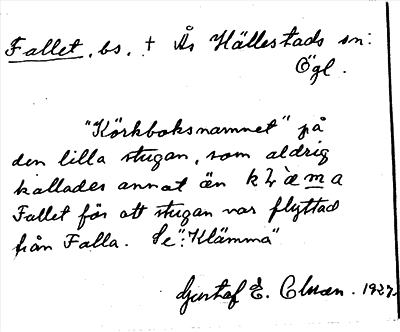 Fallet, bs. + Ås Hällestads sn:
Ögl.
"Körkboksnamnet" på
den lilla stugan, som aldrig
kallades annat än kläma
Fallet för att stugan var flyttad
från Falla. Se "Klämma"
Gustaf E. Olsson. 1927.